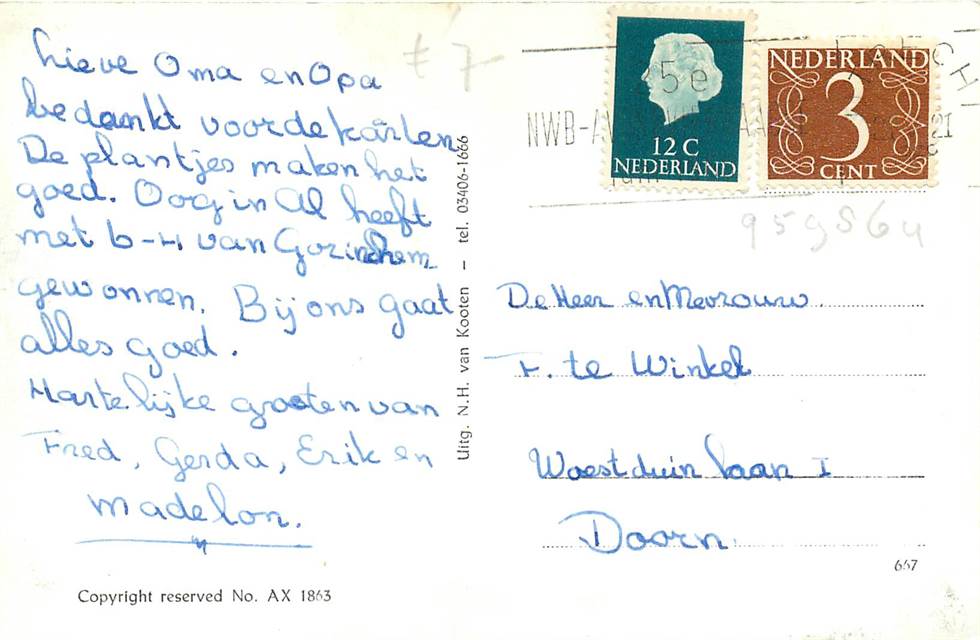 Lieve Oma en Opa
bedankt voor de kaarten
De plantjes maken het
goed. Oog in Al heeft
met 6-4 van Gorinchem
gewonnen. Bij ons gaat
alles goed.
Hartelijke groeten van
Fred, Gerda, Erik en
Madelon.
Copyright reserved No. AX 1863
Uitg. N.H. van Kooten - tel. 03406-1666
f 7-
25e
NWB-AV
12 C
NEDERLAND
NEDERLAND
3
CENT
21
959564
De Heer en Mevrouw
F. te Winkel
Woestduin laan I
Doorn
667